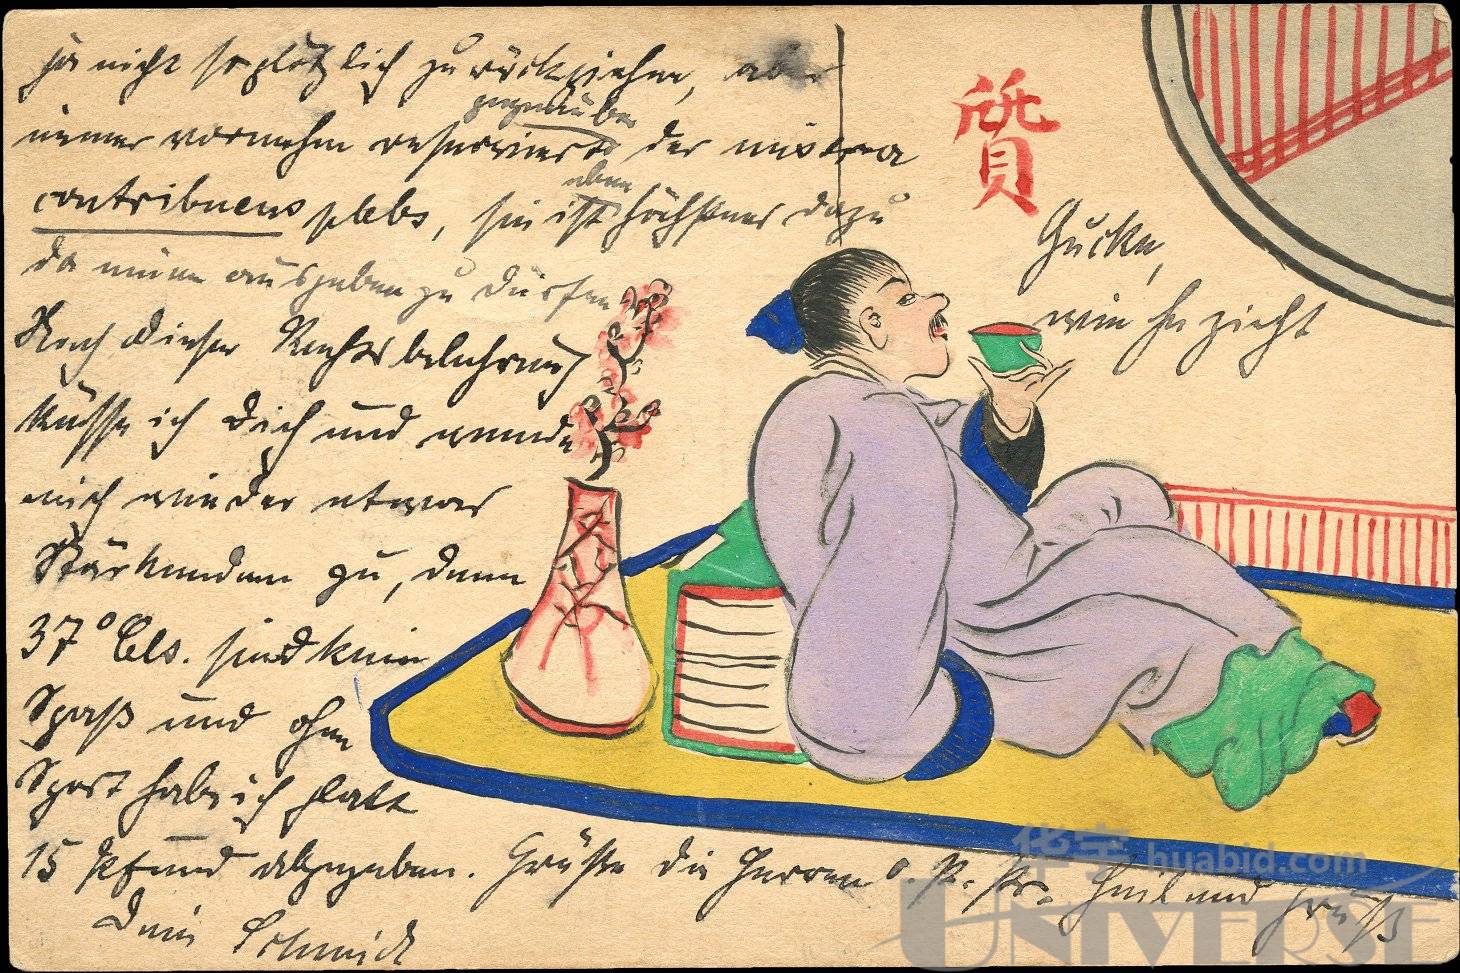 ja nicht so plötzlich zurückziehen, aber
immer vornehm reserviert gegenüber der misera
contribuens plebs, sie ist eben höchstens dazu
da ausgeben zu dürfen
Nach dieser Rechtsbelehrung
küsse ich Dich und wende
mich wieder etwas
Stärkendem zu, denn
37° Cels. sind kein
Spaß und ohne
Sport habe ich glatt
15 Pfund abgegeben. Grüße die Herren O. P. Pr. Heil und Gruß
Dein Schmidt
質
Gucke,
wie he zieht
华宇 huabid.com
UNIVERSE